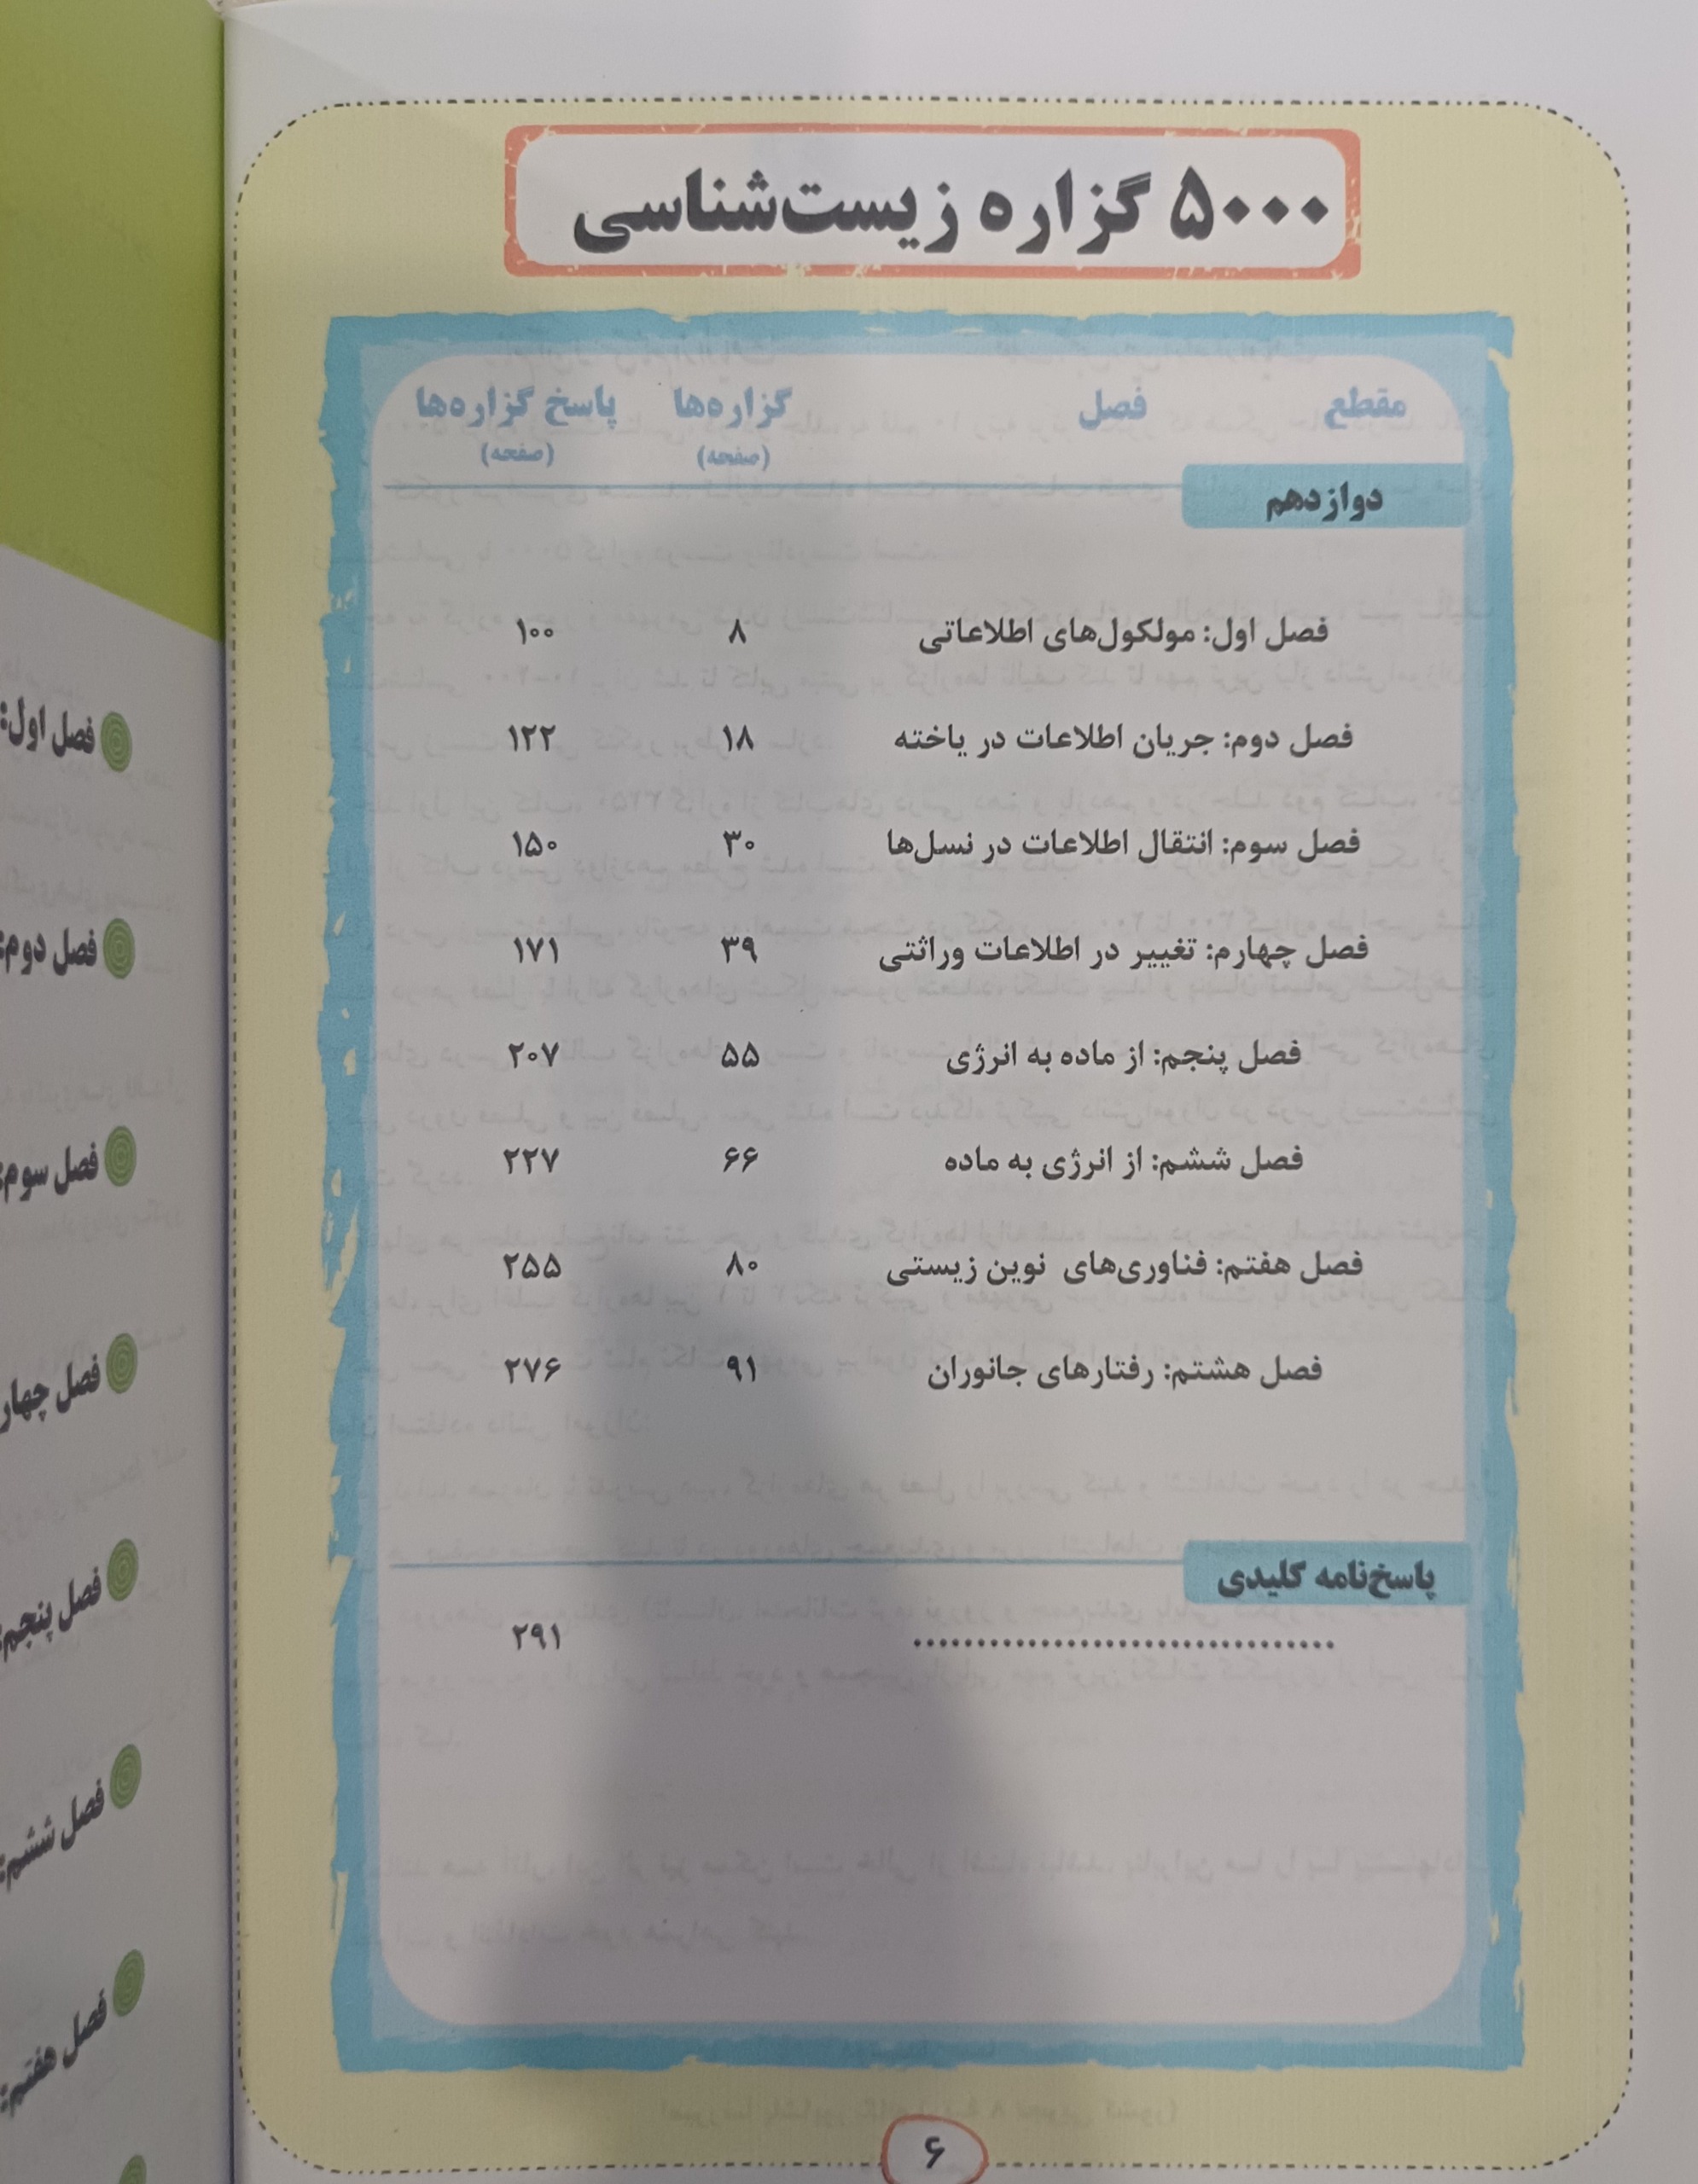 ۵۰۰۰ گزاره زیست‌شناسی
مقطع فصل گزاره‌ها پاسخ گزاره‌ها
(صفحه) (صفحه)
دوازدهم
فصل اول: مولکول‌های اطلاعاتی ۸ ۱۰۰
فصل دوم: جریان اطلاعات در یاخته ۱۸ ۱۲۲
فصل سوم: انتقال اطلاعات در نسل‌ها ۳۰ ۱۵۰
فصل چهارم: تغییر در اطلاعات وراثتی ۳۹ ۱۷۱
فصل پنجم: از ماده به انرژی ۵۵ ۲۰۷
فصل ششم: از انرژی به ماده ۶۶ ۲۲۷
فصل هفتم: فناوری‌های نوین زیستی ۸۰ ۲۵۵
فصل هشتم: رفتارهای جانوران ۹۱ ۲۷۶
پاسخ‌نامه کلیدی
.................................. ۲۹۱
۶
فصل اول:
فصل دوم:
فصل سوم:
فصل چهار
فصل پنجم:
فصل ششم:
فصل هفتم: